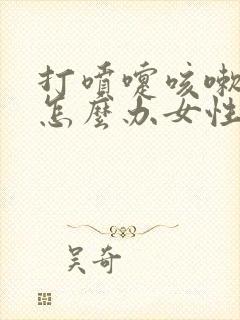 打噴嚏咳嗽
怎麼办女性
吴奇